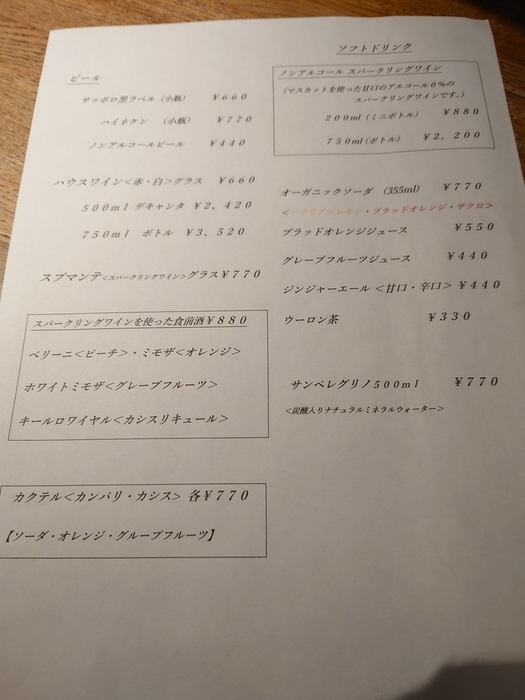 ビール
サッポロ黒ラベル（小瓶） ￥６６０
ハイネケン （小瓶） ￥７７０
ノンアルコールビール ￥４４０
ハウスワイン＜赤・白＞グラス ￥６６０
５００ｍｌ デキャンタ ￥２，４２０
７５０ｍｌ ボトル ￥３，５２０
スプマンテ＜スパークリングワイン＞グラス￥７７０
スパークリングワインを使った食前酒￥８８０
ベリーニ＜ピーチ＞・ミモザ＜オレンジ＞
ホワイトミモザ＜グレープフルーツ＞
キールロワイヤル＜カシスリキュール＞
カクテル＜カンパリ・カシス＞ 各￥７７０
【ソーダ・オレンジ・グループフルーツ】
ソフトドリンク
ノンアルコール スパークリングワイン
（マスカットを使った甘口のアルコール０％の
スパークリングワインです。）
２００ｍｌ（ミニボトル） ￥８８０
７５０ｍｌ（ボトル） ￥２，２００
オーガニックソーダ （355ml） ￥７７０
＜シチリアンレモン・ブラッドオレンジ・ザクロ＞
ブラッドオレンジジュース ￥５５０
グレープフルーツジュース ￥４４０
ジンジャーエール ＜甘口・辛口＞ ￥４４０
ウーロン茶 ￥３３０
サンペレグリノ５００ｍｌ ￥７７０
＜炭酸入りナチュラルミネラルウォーター＞